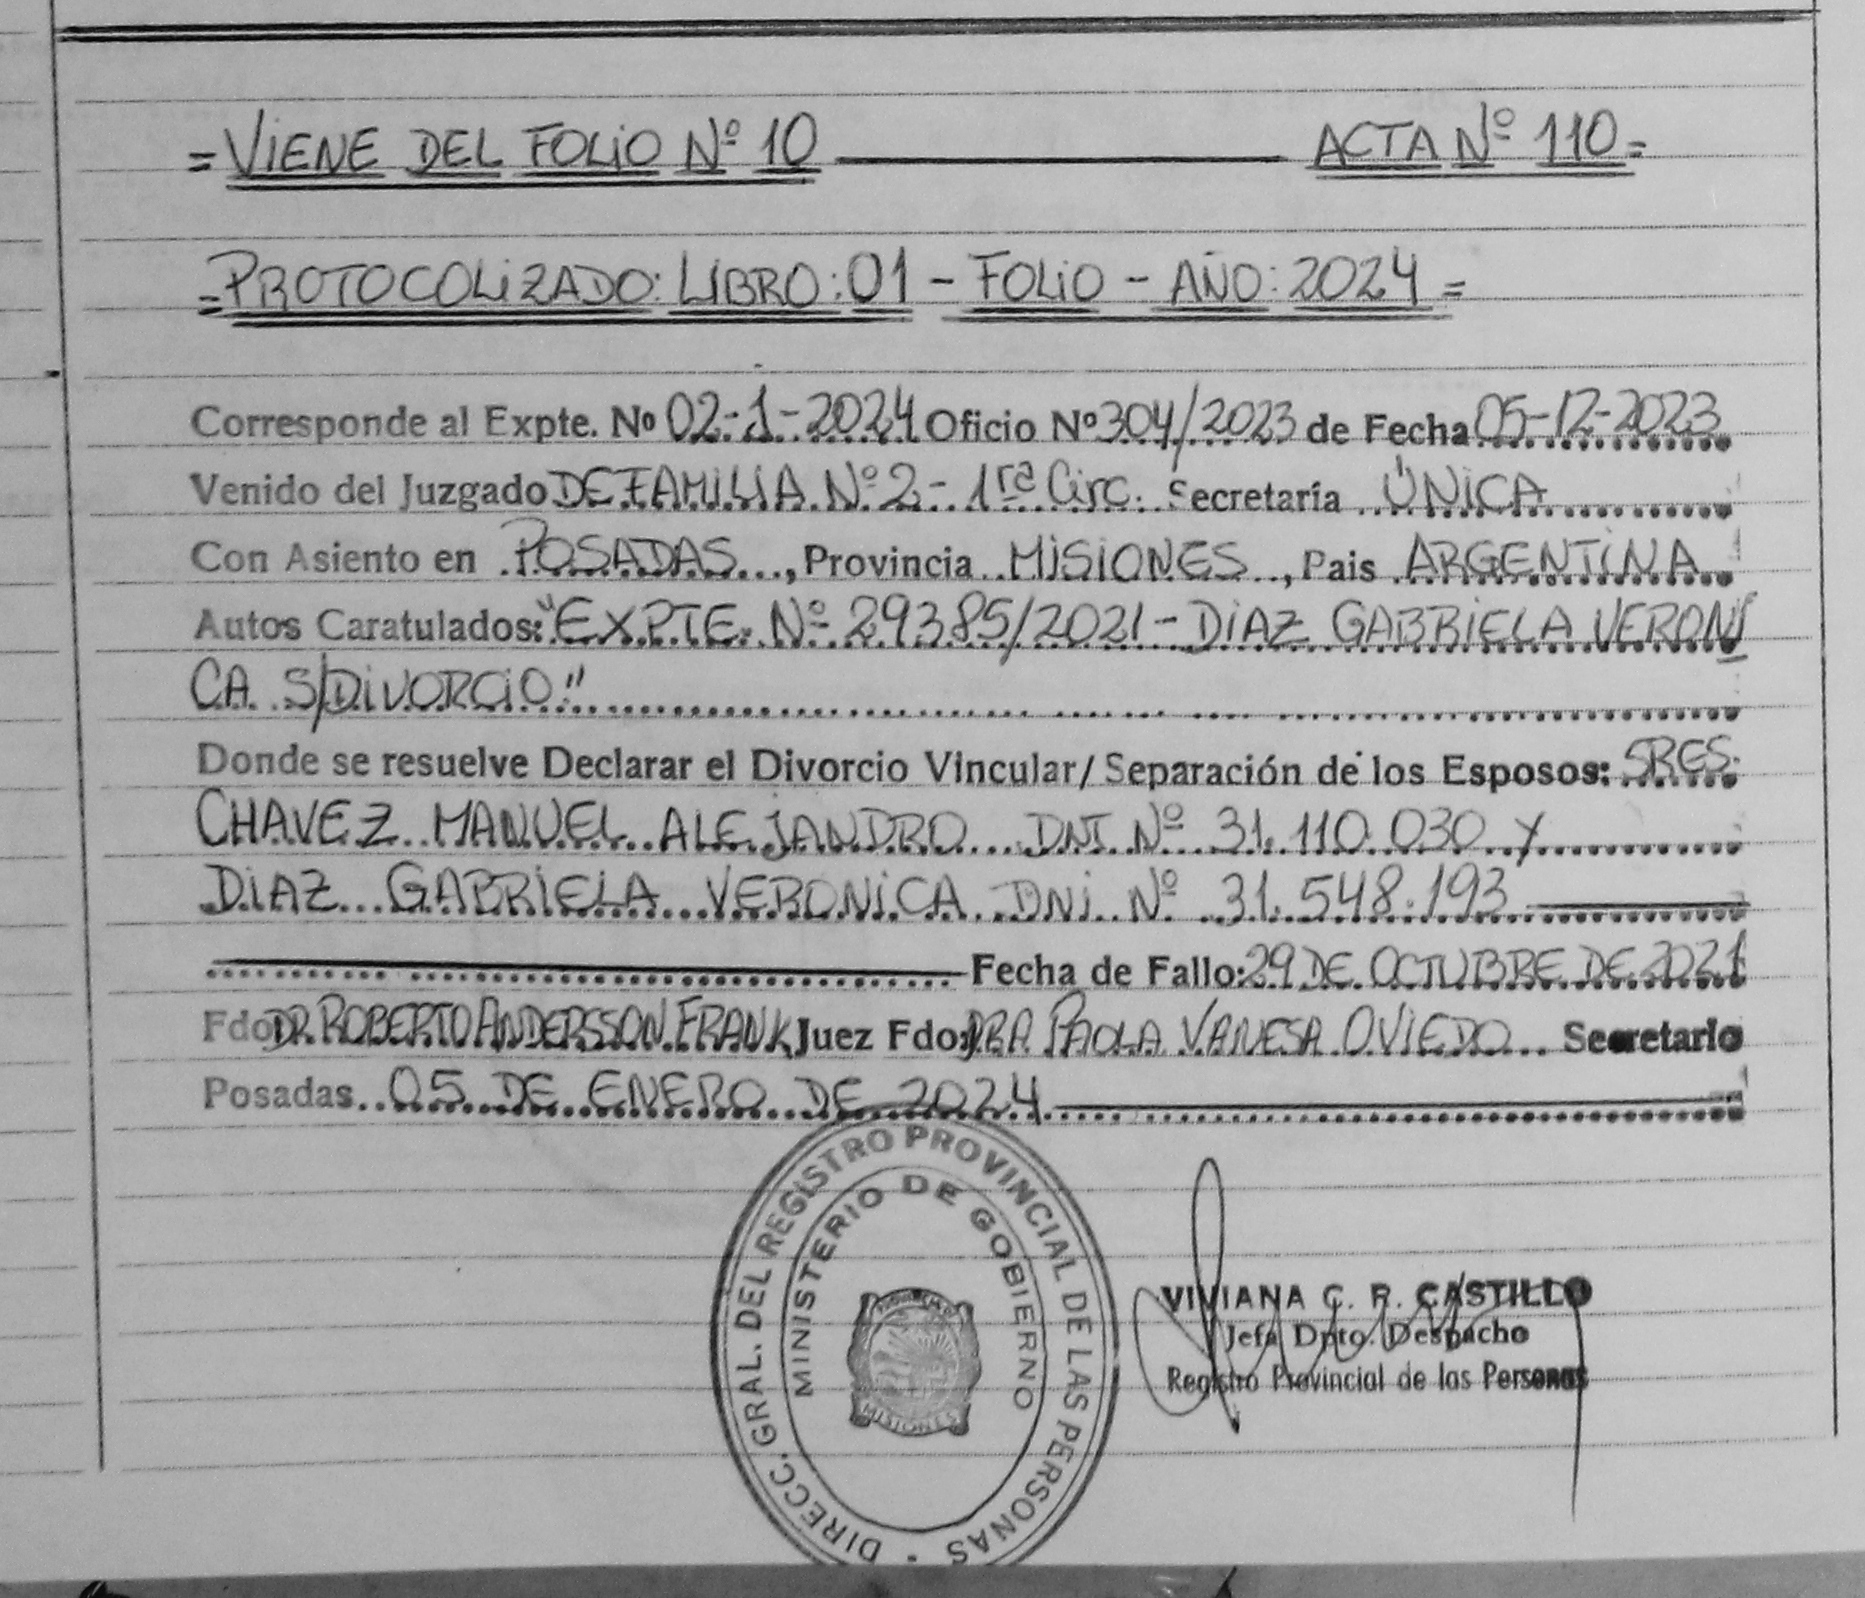 = VIENE DEL FOLIO Nº 10 ACTA Nº 110 =
= PROTOCOLIZADO: LIBRO: 01 - FOLIO - AÑO: 2024 =
Corresponde al Expte. Nº 02-1-2024 Oficio Nº 304/2023 de Fecha 05-12-2023
Venido del Juzgado DE FAMILIA Nº 2 - 1ra Circ. Secretaría ÚNICA
Con Asiento en POSADAS, Provincia MISIONES, Pais ARGENTINA
Autos Caratulados: "EXPTE. Nº 29385/2021 - DIAZ GABRIELA VERONI
CA S/DIVORCIO"
Donde se resuelve Declarar el Divorcio Vincular/ Separación de los Esposos: SRES.
CHAVEZ MANUEL ALEJANDRO DNI Nº 31.110.030 Y
DIAZ GABRIELA VERONICA DNI Nº 31.548.193
Fecha de Fallo: 29 DE OCTUBRE DE 2021
Fdo: DR. ROBERTO ANDERSSON FRANK Juez Fdo: DRA PAOLA VANESA OVIEDO Secretario
Posadas 05 DE ENERO DE 2024
DIRECC. GRAL. DEL REGISTRO PROVINCIAL DE LAS PERSONAS
MINISTERIO DE GOBIERNO
MISIONES
VIVIANA C. R. CASTILLO
Jefa Dpto. Despacho
Registro Provincial de las Personas